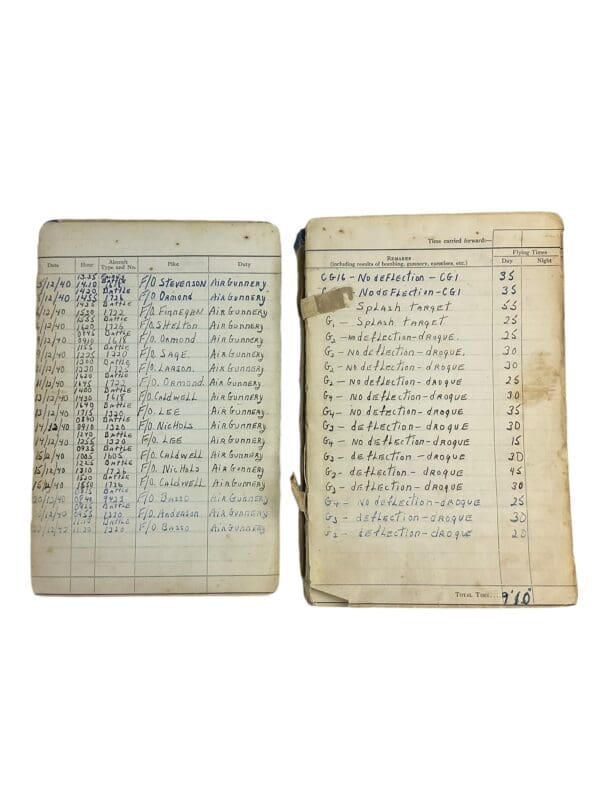 Date Hour Aircraft Type and No. Pilot Duty
/12/40 1410 Battle F/O STEVENSON AIR GUNNERY
/12/40 1455 1726 F/O. Ormond AIR GUNNERY.
/12/40 1530 1722 F/O. Finnegan AIR GUNNERY.
/12/40 1620 1726 F/O. SHELTON AIR GUNNERY.
/12/40 0910 1618 F/O. Ormond AIR GUNNERY.
/12/40 1225 1320 F/O. SAGE. AIR GUNNERY.
/12/40 1330 F/O. LARSON. AIR GUNNERY.
11/12/40 1645 1722 F/O. Ormond. AIR GUNNERY.
/12/40 1430 1618 F/O. CALDWELL AIR GUNNERY.
13/12/40 1715 1320 F/O. LEE AIR GUNNERY.
/12/40 0910 1320 F/O. NICHOLS AIR GUNNERY.
14/12/40 1255 1320 F/O. LEE AIR GUNNERY.
/40 1005 F/O. CALDWELL AIR GUNNERY
15/12/40 1310 1726 F/O. NICHOLS AIR GUNNERY.
/40 1550 1726 F/O. CALDWELL AIR GUNNERY.
20/12/40 0840 F/O. BASSO AIR GUNNERY.
/12/40 0955 1320 F/O. Anderson AIR GUNNERY.
/12/40 1130 1320 F/O. BASSO AIR GUNNERY.
Time carried forward:—
Remarks
(including results of bombing, gunnery, exercises, etc.)
Flying Times
Day Night
CG16 - NO dEFLECTION - CG1 35
NO dEFLECTION - CG1 35
SPLASH TARGET 55
G1 - SPLASH TARGET 25
G2 - NO dEFLECTION - dROGUE. 25
G2 - NO dEFLECTION - dROGUE. 30
G2 - NO dEFLECTION - dROGUE 30
G2 - NO dEFLECTION - dROGUE 25
G4 - NO dEFLECTION - dROGUE 30
G4 - NO dEFLECTION - dROGUE 35
G3 - dEFLECTION - dROGUE 30
G4 - NO dEFLECTION - dROGUE 15
G3 - dEFLECTION - dROGUE 30
G3 - dEFLECTION - dROGUE 45
G3 - dEFLECTION - dROGUE 30
G4 - NO dEFLECTION - dROGUE 25
G3 - dEFLECTION - dROGUE 30
dEFLECTION - dROGUE 20
Total Time... 9'10